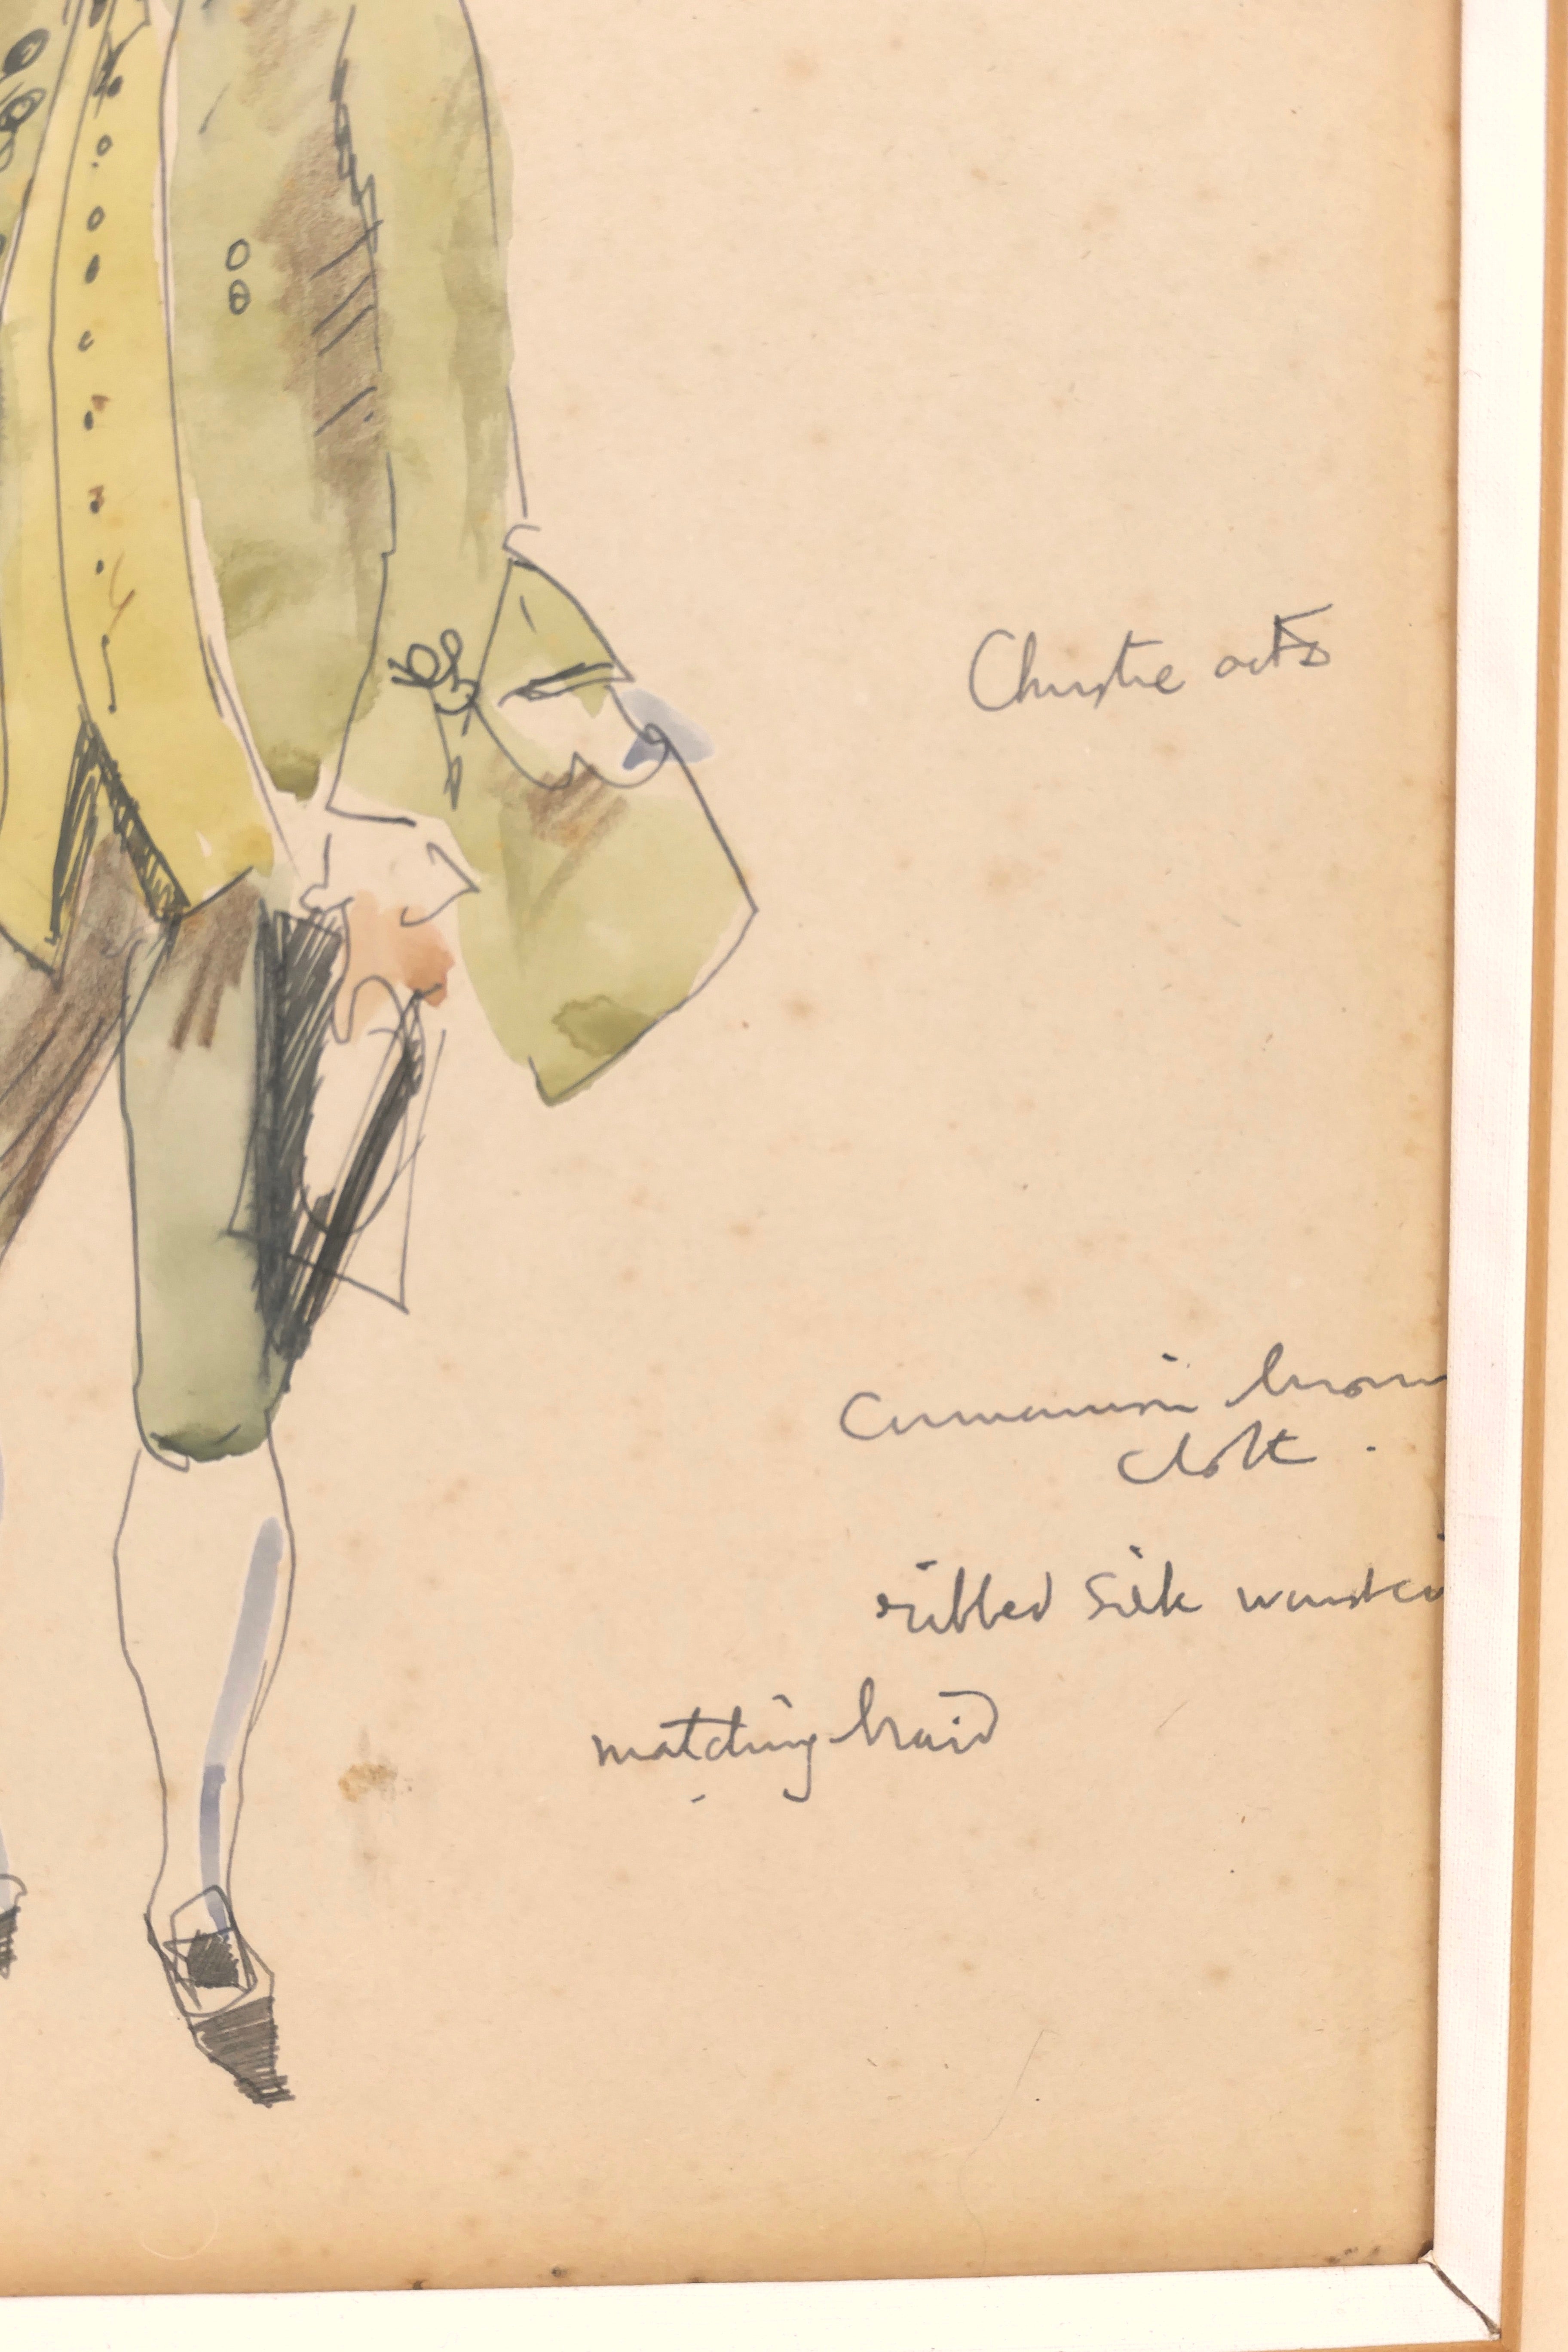 Christie
Cinnamon brown
cloth.
ribbed silk waistco
matching braid